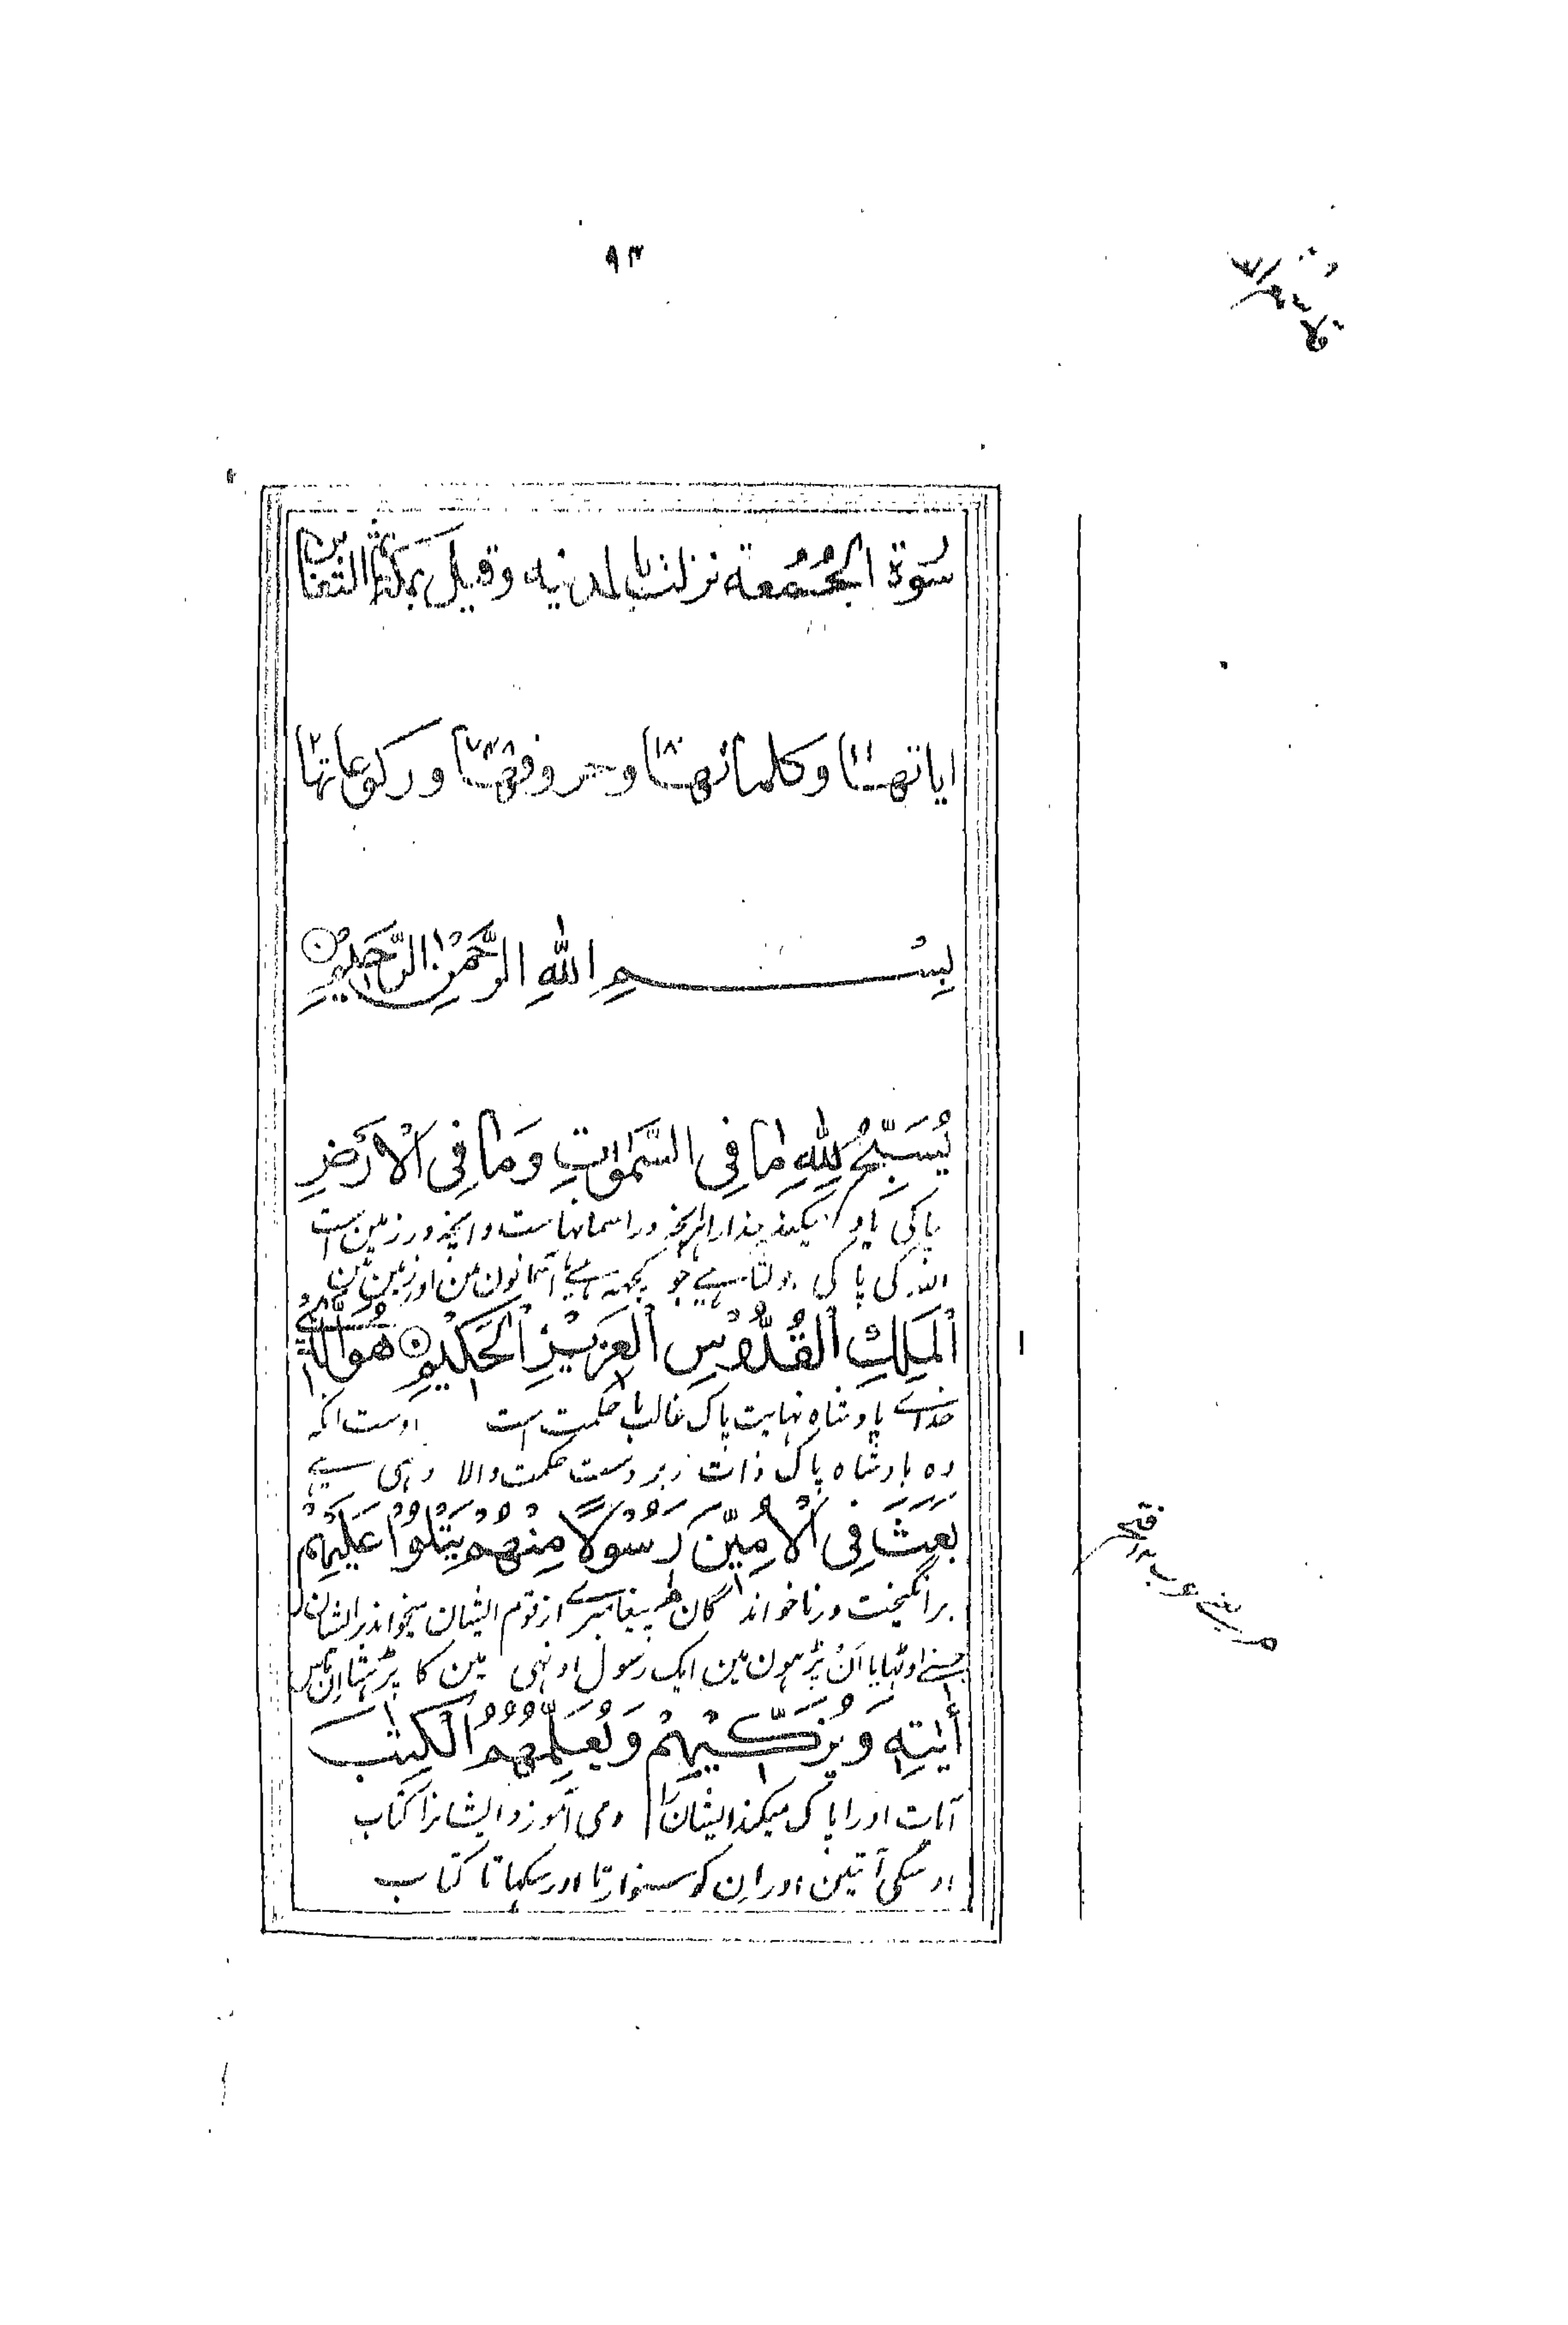 ٩٣
سُورة الجُمُعة نزلت بالمدنيه وقيل بمكة التغابن
اياتها ١١ وكلماتها ١٨٠ وحروفها ٧٤٨ وركوعاتها ٢
بِسْمِ اللّٰهِ الرَّحْمٰنِ الرَّحِيْمِ
يُسَبِّحُ لِلّٰهِ مَا فِى السَّمٰوٰتِ وَمَا فِى الْاَرْضِ
پاکی یاد میکند خدا را هرچه در اسمانهاست و انچه در زمین است
اللہ کی پاکی بولتا ہے جو کچھہ ہے آسمانون مین اور زمین مین
الْمَلِكِ الْقُدُّوْسِ الْعَزِيْزِ الْحَكِيْمِ هُوَ الَّذِيْ
خداے پادشاہ نہایت پاک غالب با حکمت است اوست انکہ
وہ بادشاہ پاک ذات زبردست حکمت والا وہی ہے
بَعَثَ فِى الْاُمِّيّٖنَ رَسُوْلًا مِنْهُمْ يَتْلُوْا عَلَيْهِمْ
برانگیخت در ناخواندگان پیغامبرے از قوم ایشان میخواند بر ایشان
جسنے اوٹہایا اَن پڑہون مین ایک رسول اونہی مین کا پڑہتا اِن پاس
اٰيٰتِهٖ وَيُزَكِّيْهِمْ وَيُعَلِّمُهُمُ الْكِتٰبَ
آیات اورا پاک میکند ایشان را ومی آموزد ایشانرا کتاب
اوسکی آیتین اور اِن کو سنوارتا اور سکہاتا کتاب
م یعنے عرب ۱۲ فتح